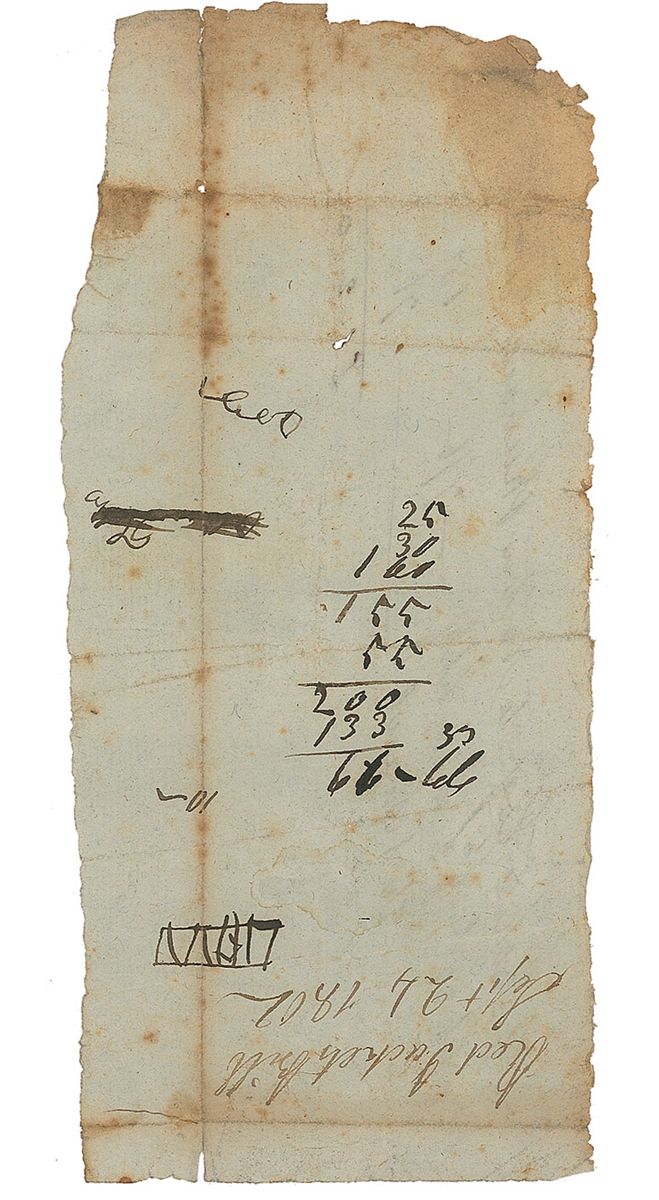 25
30
160
155
55
200
133
66 - 66
33
10
Red Jackets Bill
Sept 24 1802